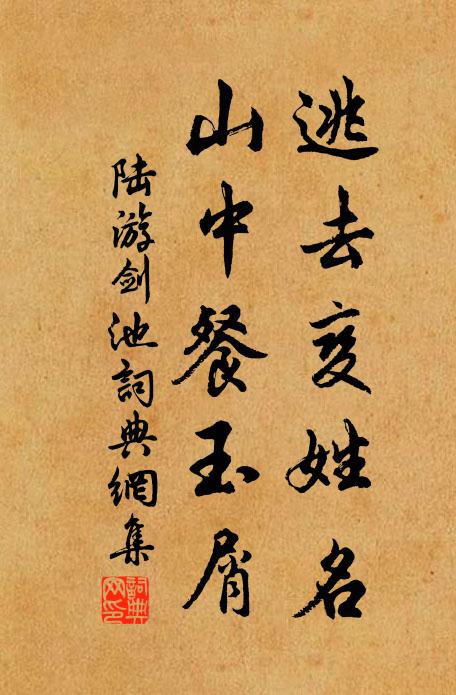 逃去变姓名
山中餐玉屑
陆游剑池詞典網集
詞典網印